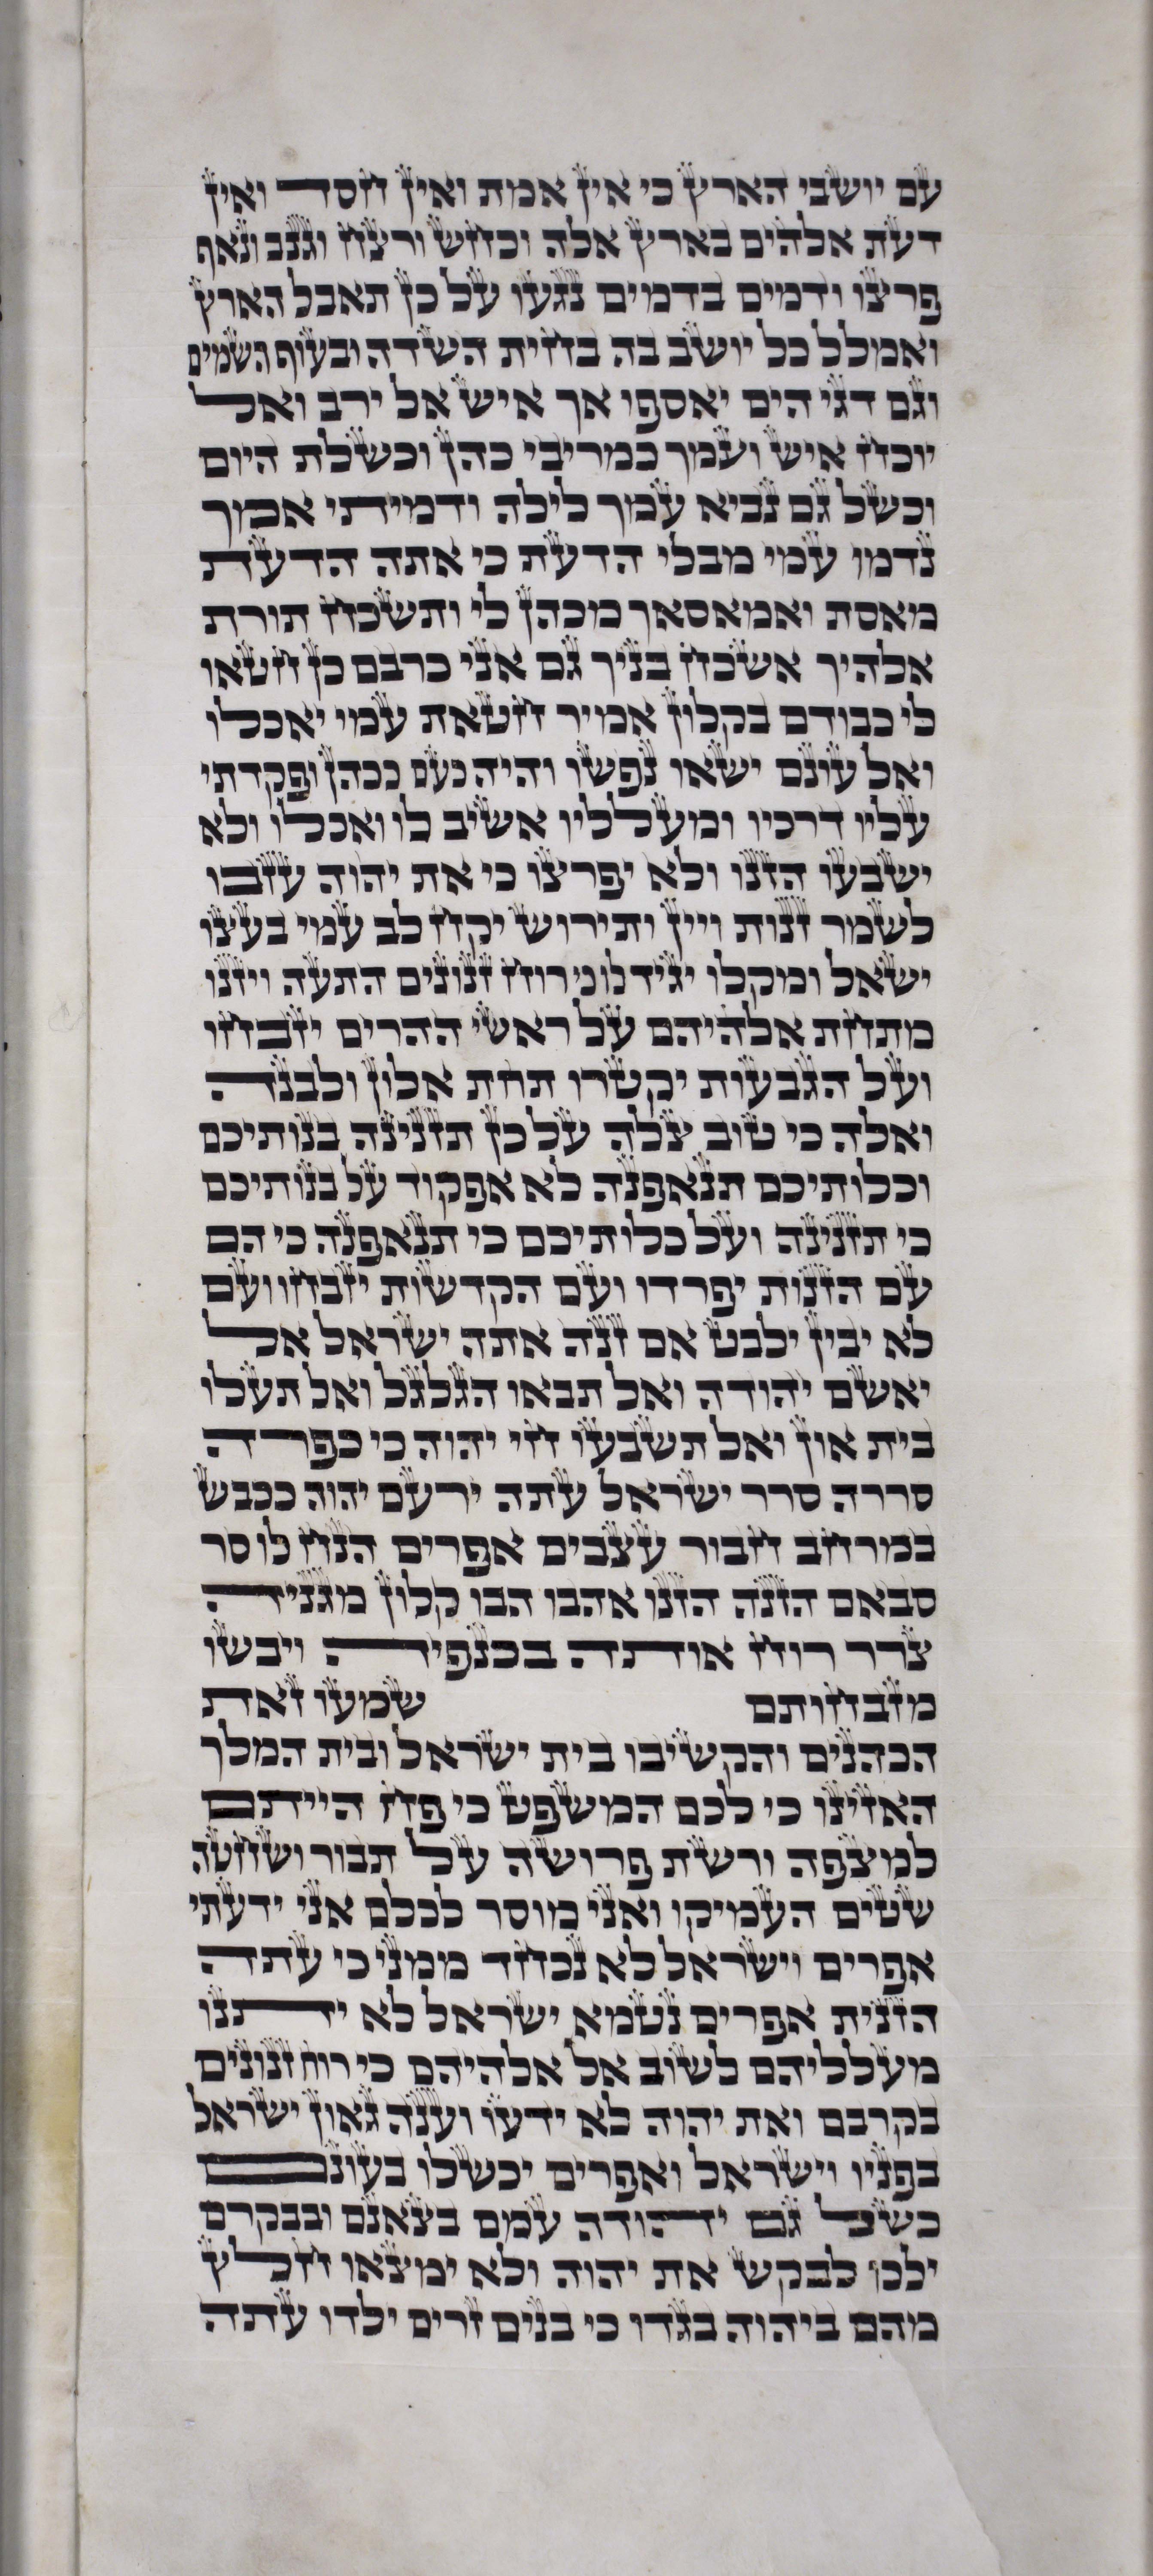 עם יושבי הארץ כי אין אמת ואין חסד ואין
דעת אלהים בארץ אלה וכחש ורצח וגנב ונאף
פרצו ודמים בדמים נגעו על כן תאבל הארץ
ואמלל כל יושב בה בחית השדה ובעוף השמים
וגם דגי הים יאספו אך איש אל ירב ואל
יוכח איש ועמך כמריבי כהן וכשלת היום
וכשל גם נביא עמך לילה ודמיתי אמך
נדמו עמי מבלי הדעת כי אתה הדעת
מאסת ואמאסאך מכהן לי ותשכח תורת
אלהיך אשכח בניך גם אני כרבם כן חטאו
לי כבודם בקלון אמיר חטאת עמי יאכלו
ואל עונם ישאו נפשו והיה כעם ככהן ופקדתי
עליו דרכיו ומעלליו אשיב לו ואכלו ולא
ישבעו הזנו ולא יפרצו כי את יהוה עזבו
לשמר זנות ויין ותירוש יקח לב עמי בעצו
ישאל ומקלו יגיד לו כי רוח זנונים התעה ויזנו
מתחת אלהיהם על ראשי ההרים יזבחו
ועל הגבעות יקטרו תחת אלון ולבנה
ואלה כי טוב צלה על כן תזנינה בנותיכם
וכלותיכם תנאפנה לא אפקוד על בנותיכם
כי תזנינה ועל כלותיכם כי תנאפנה כי הם
עם הזנות יפרדו ועם הקדשות יזבחו ועם
לא יבין ילבט אם זנה אתה ישראל אל
יאשם יהודה ואל תבאו הגלגל ואל תעלו
בית און ואל תשבעו חי יהוה כי כפרה
סררה סרר ישראל עתה ירעם יהוה ככבש
במרחב חבור עצבים אפרים הנח לו סר
סבאם הזנה הזנו אהבו הבו קלון מגניה
צרר רוח אותה בכנפיה ויבשו
מזבחותם שמעו זאת
הכהנים והקשיבו בית ישראל ובית המלך
האזינו כי לכם המשפט כי פח הייתם
למצפה ורשת פרושה על תבור ושחטה
שטים העמיקו ואני מוסר לכלם אני ידעתי
אפרים וישראל לא נכחד ממני כי עתה
הזנית אפרים נטמא ישראל לא יתננו
מעלליהם לשוב אל אלהיהם כי רוח זנונים
בקרבם ואת יהוה לא ידעו וענה גאון ישראל
בפניו וישראל ואפרים יכשלו בעונם
כשל גם יהודה עמם בצאנם ובבקרם
ילכו לבקש את יהוה ולא ימצאו חלץ
מהם ביהוה בגדו כי בנים זרים ילדו עתה